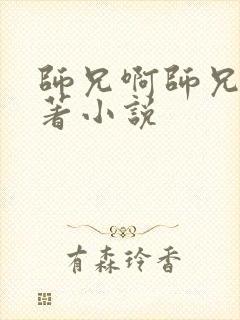 師兄啊師兄
著小説
有森玲香